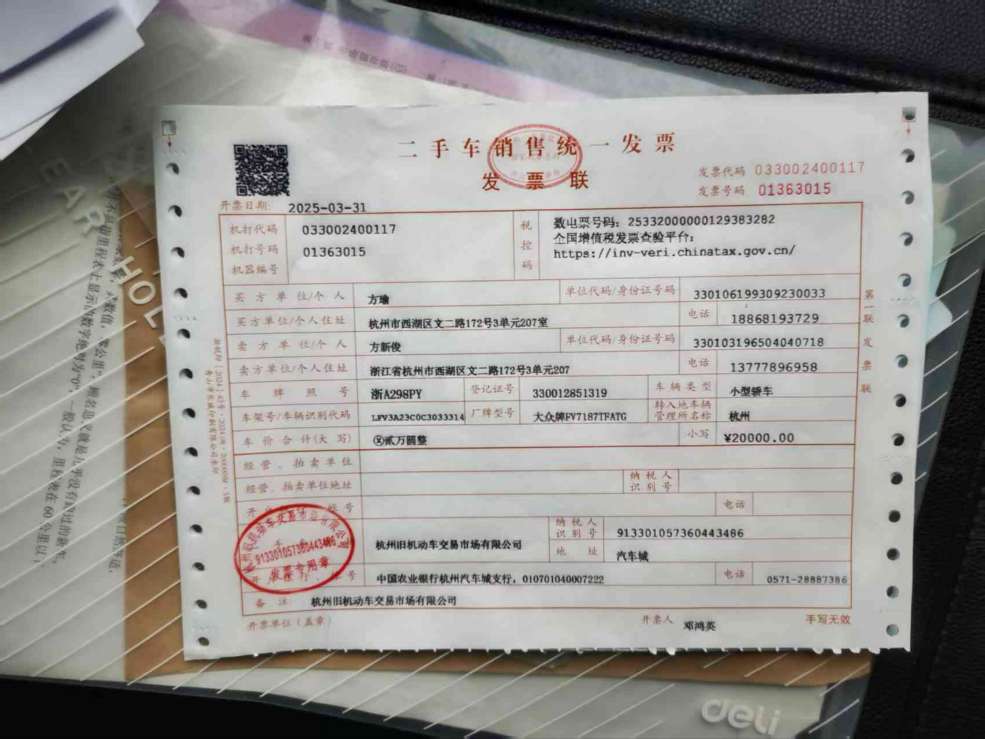 二手车销售统一发票
发票联
发票代码 033002400117
发票号码 01363015
开票日期: 2025-03-31
机打代码 033002400117
机打号码 01363015
机器编号
税控码
数电票号码: 25332000000129383282
全国增值税发票查验平台:
https://inv-veri.chinatax.gov.cn/
买方单位/个人 方瑜 单位代码/身份证号码 330106199309230033
买方单位/个人住址 杭州市西湖区文二路172号3单元207室 电话 18868193729
卖方单位/个人 方新俊 单位代码/身份证号码 330103196504040718
卖方单位/个人住址 浙江省杭州市西湖区文二路172号3单元207 电话 13777896958
车牌照号 浙A298PY 登记证号 330012851319 车辆类型 小型轿车
车架号/车辆识别代码 LFV3A23C0C3033314 厂牌型号 大众牌FV7187TFATG 转入地车辆管理所名称 杭州
车价合计(大写) ⊗贰万圆整 小写 ¥20000.00
经营、拍卖单位
经营、拍卖单位地址 纳税人识别号
开 账号 电话
杭州旧机动车交易市场有限公司 纳税人识别号 913301057360443486
地址 汽车城
开 号 中国农业银行杭州汽车城支行, 010701040007222 电话 0571-28887386
备注 杭州旧机动车交易市场有限公司
开票单位(盖章) 开票人 邓鸿英 手写无效
第一联 发票联
杭州旧机动车交易市场有限公司
913301057360443486
发票专用章
deli